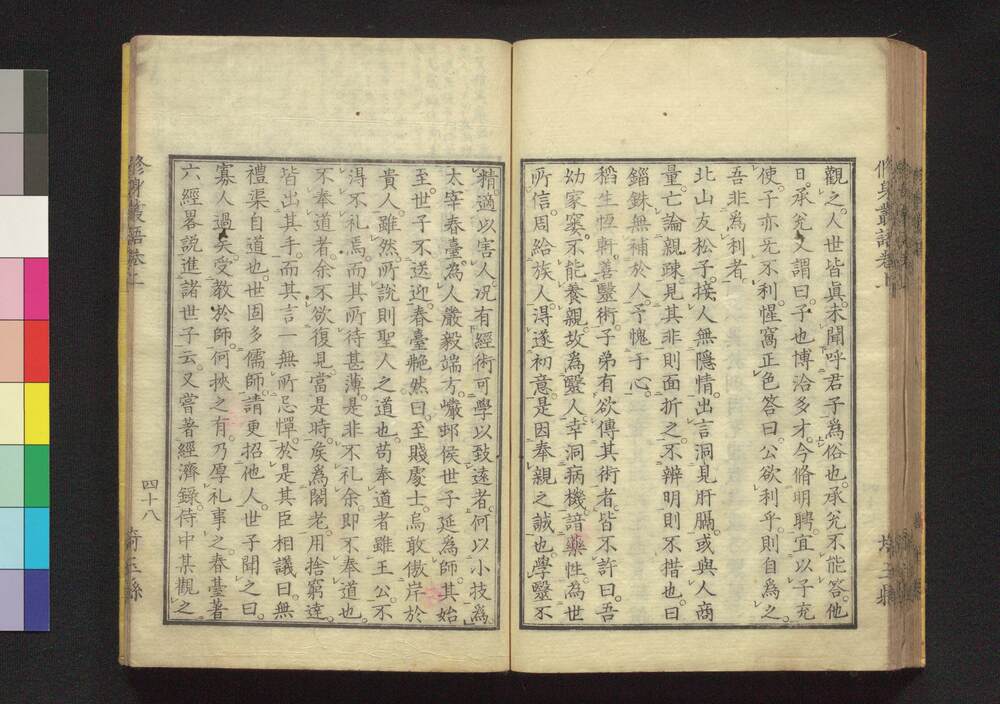 觀之。人世皆眞。未聞呼君子爲俗也。承兊不能答。他
日。承兊又謂曰。子也博洽多才。今脩明聘。宜以子充
使。子亦无不利。惺窩正色答曰。公欲利乎。則自爲之。
吾非爲利者。
北山友松子。接人無隱情。出言洞見肝膈。或與人商
量。亡論親疎。見其非則面折之。不辨明則不措也。曰
錙銖無補於人。予愧于心。
稻生恆軒。善毉術。子弟有欲傳其術者。皆不許曰。吾
幼家窶。不能養親。故爲毉人。幸洞病機。諳藥性。爲世
所信。周給族人。淂遂初意。是因奉親之誠也。學毉不
精。適以害人。况有經術可學以致遠者。何以小技爲。
太宰春臺。爲人嚴毅端方。巖邨侯世子延爲師。其始
至。世子不送迎。春臺艴然曰。至賤處士。烏敢傲岸於
貴人。雖然。所說則聖人之道也。苟奉道者。雖王公。不
淂不礼焉。而其所待甚薄。是非不礼余。即不奉道也。
不奉道者。余不欲復見。當是時。矦爲閣老。用捨窮達。
皆出其手。而其言一無所忌憚。於是其臣相議曰。無
禮渠自道也。世固多儒師。請更招他人。世子聞之曰。
寡人過矣。受教於師。何挾之有。乃厚礼事之。春臺著
六經畧說。進諸世子云。又嘗著經濟錄。侍中某觀之
修身叢語卷上
四十八